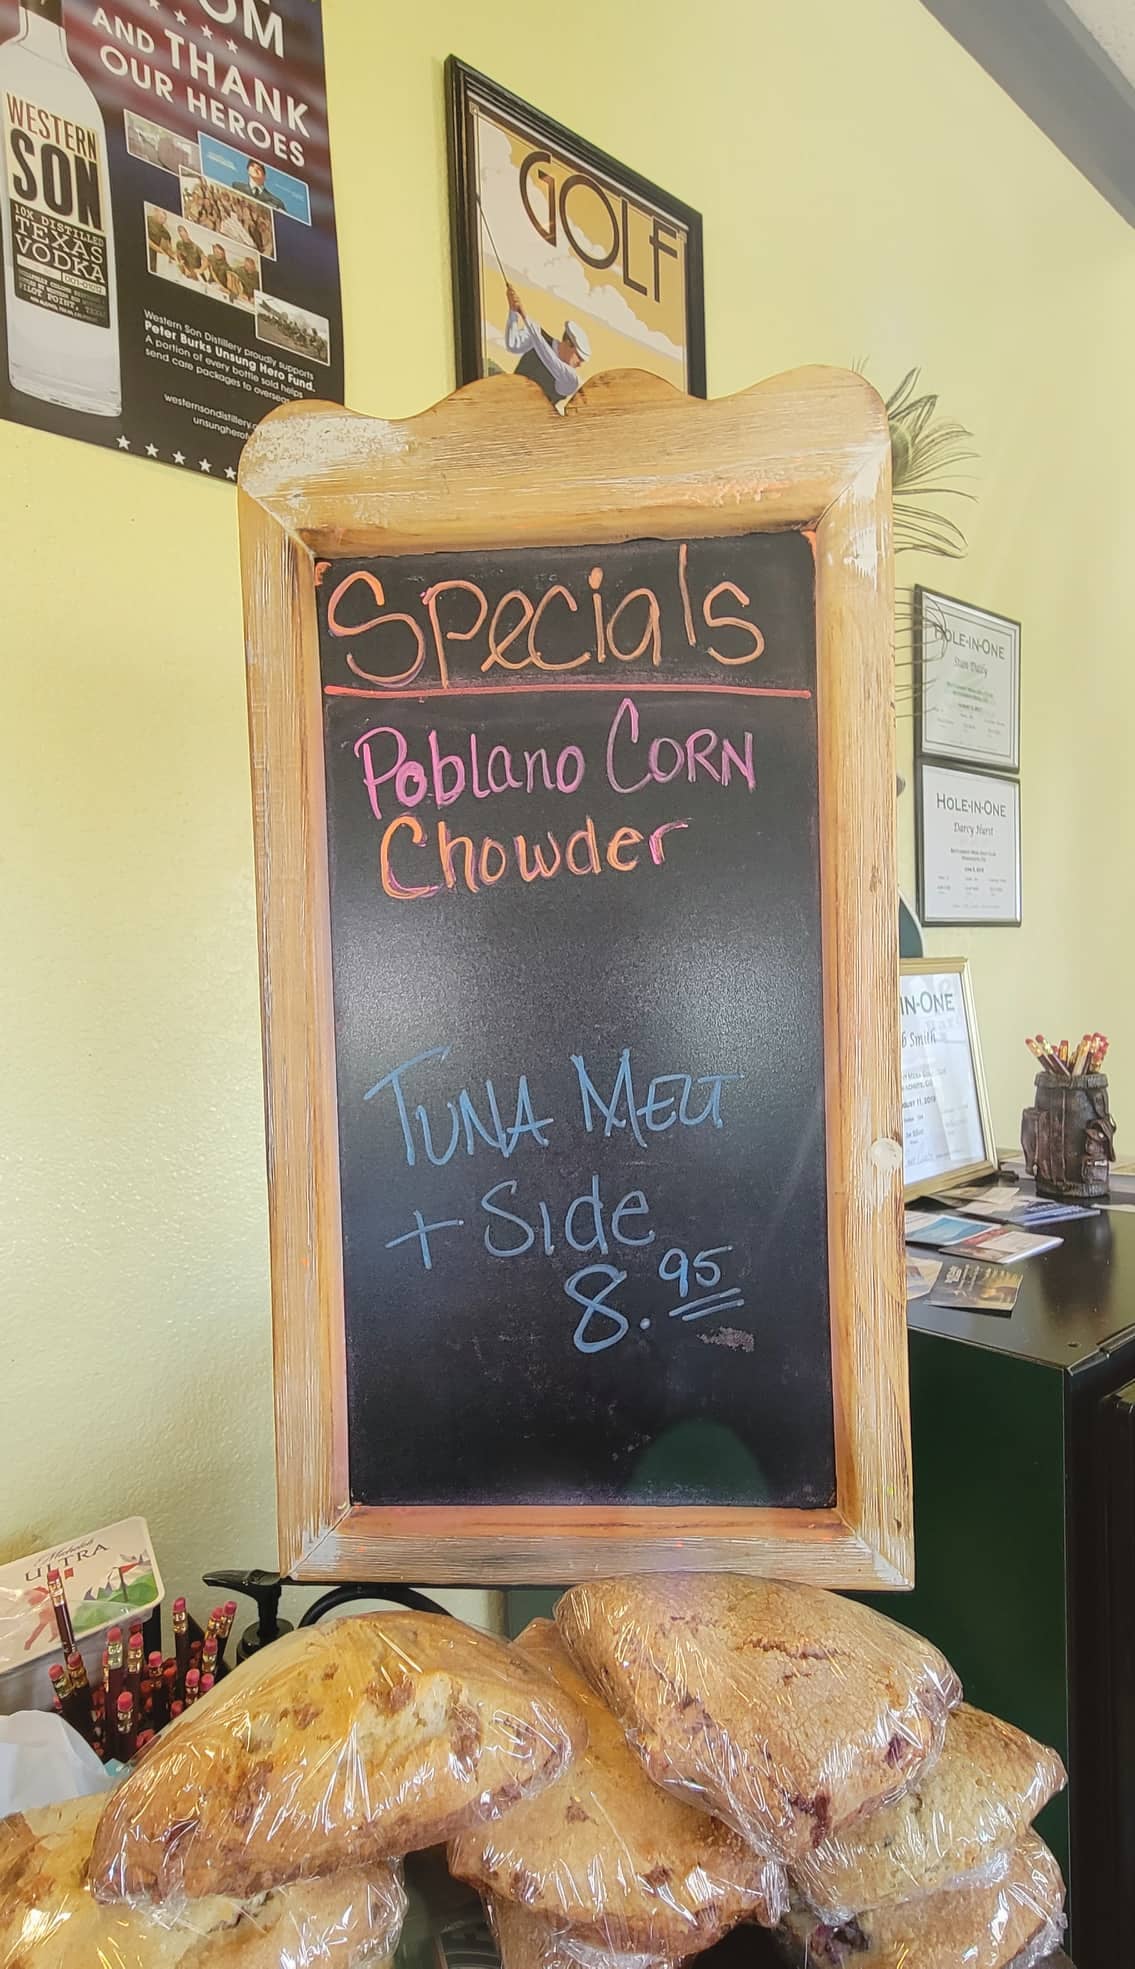 OM
AND THANK
OUR HEROES
WESTERN
SON
10X DISTILLED
TEXAS
VODKA
PILOT POINT, TEXAS
Western Son Distillery proudly supports
Peter Burks Unsung Hero Fund.
A portion of every bottle sold helps
send care packages to overseas
westernsondistillery.
unsungherof
GOLF
Specials
Poblano CORN
Chowder
TUNA MELT
+ Side
8.95
HOLE-IN-ONE
HOLE-IN-ONE
Darcy Hurst
IN-ONE
Smith
Michelob
ULTRA